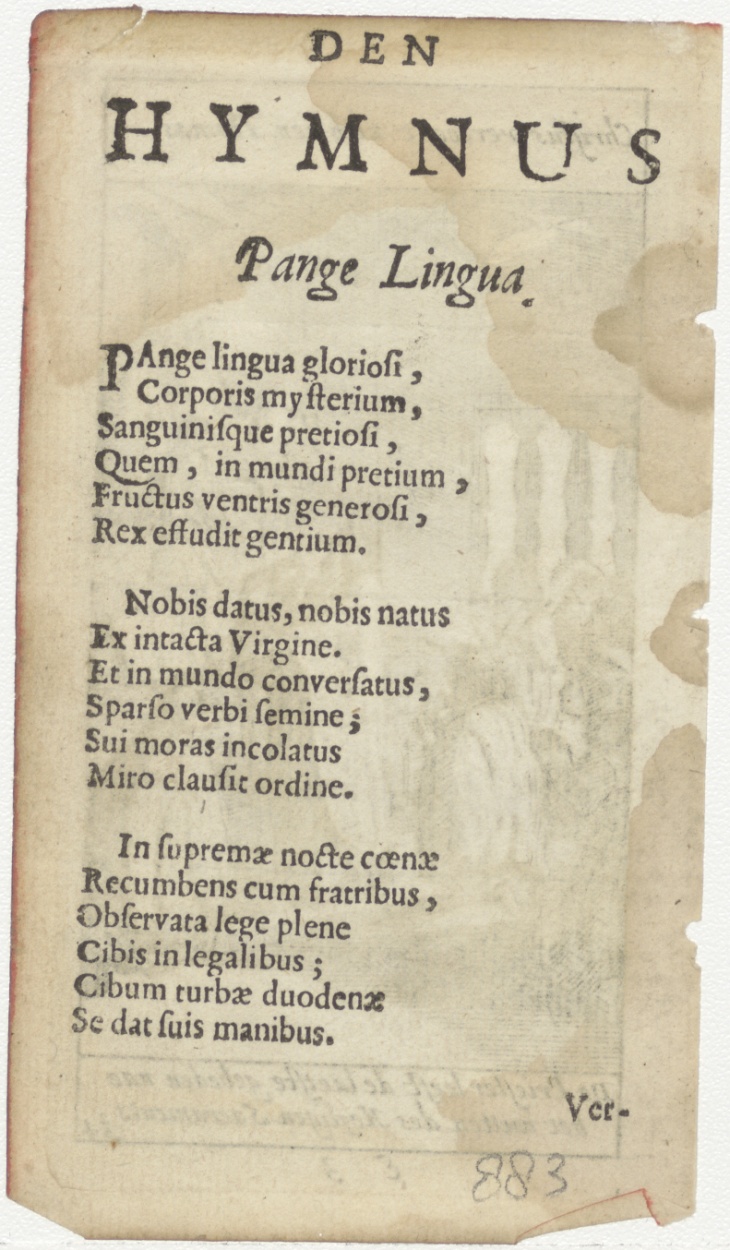 DEN
HYMNUS
Pange Lingua.
PAnge lingua glorioſi,
Corporis myſterium,
Sanguiniſque pretioſi,
Quem, in mundi pretium,
Fructus ventris generoſi,
Rex effudit gentium.
Nobis datus, nobis natus
Ex intacta Virgine.
Et in mundo converſatus,
Sparſo verbi ſemine;
Sui moras incolatus
Miro clauſit ordine.
In ſupremæ nocte cœnæ
Recumbens cum fratribus,
Obſervata lege plene
Cibis in legalibus;
Cibum turbæ duodenæ
Se dat ſuis manibus.
Ver-
883